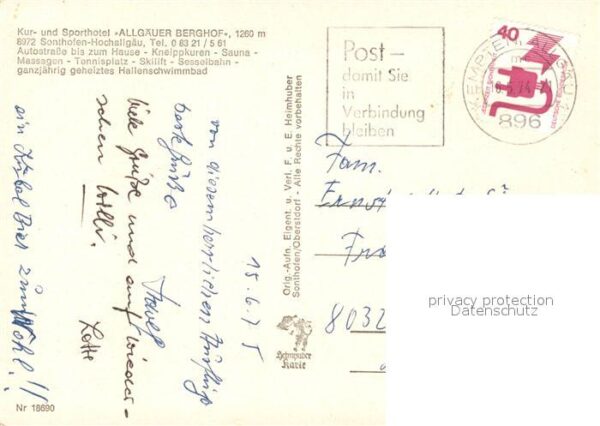 Kur- und Sporthotel »ALLGÄUER BERGHOF«, 1260 m
8972 Sonthofen-Hochallgäu, Tel. 0 83 21 / 5 61
Autostraße bis zum Hause - Kneippkuren - Sauna -
Massagen - Tennisplatz - Skilift - Sesselbahn -
ganzjährig geheiztes Hallenschwimmbad
15.6.75
von diesem herrlichen Ausflug
beste Grüße
viele Grüße und auf Wieder-
sehen Willi.
Lotte
ein Kübel Bier zum
Wohl!!
Nr 18690
Orig.-Aufn. Eigent. u. Verl. F. u. E. Heimhuber
Sonthofen/Oberstdorf - Alle Rechte vorbehalten
Heimhuber
Karte
Post -
damit Sie
in
Verbindung
bleiben
KEMPTEN ALLGÄU
896
40
DEUTSCHE BUNDESPOST
Fam.
Ernst
8032
privacy protection
Datenschutz